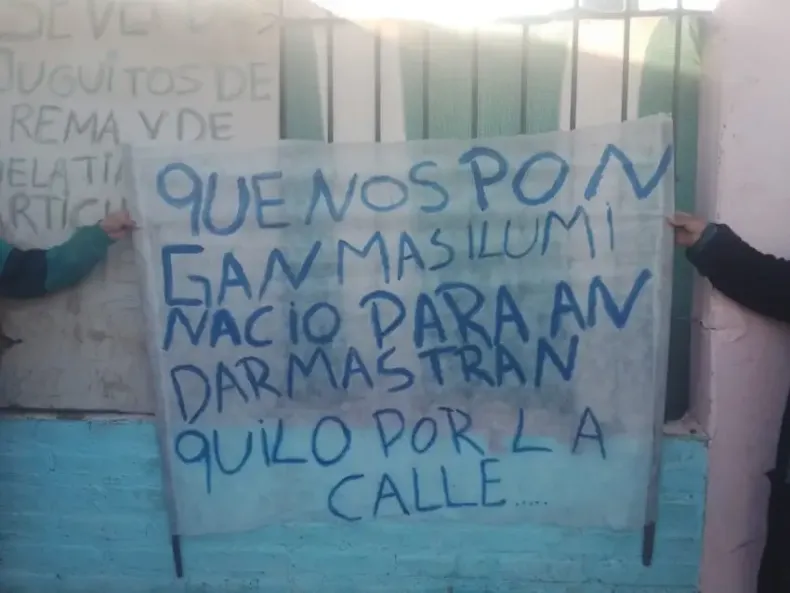 SE VE
JUGUITOS DE
REMA Y DE
ELATI
ARTICU
QUE NOS PON
GAN MAS ILUMI
NACIO PARA AN
DAR MAS TRAN
QUILO POR LA
CALLE.....